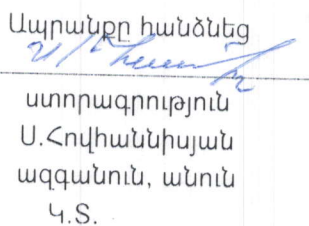 Ապրանքը հանձնեց
ստորագրություն
Ս.Հովհաննիսյան
ազգանուն, անուն
Կ.Տ.